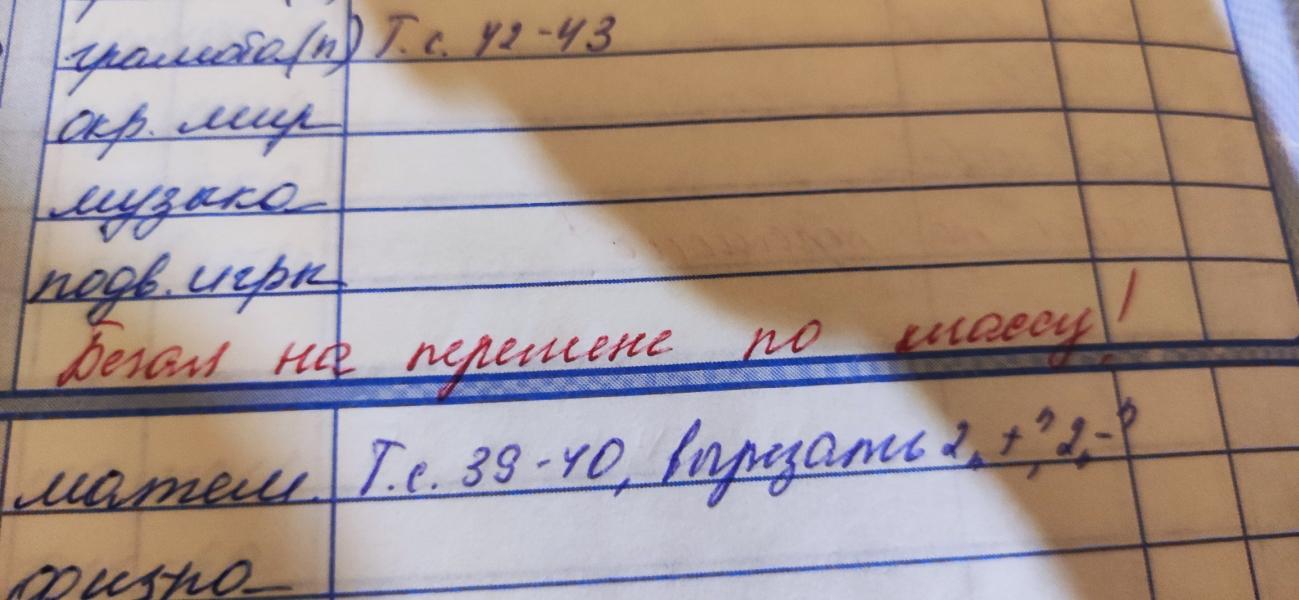 грамота(п) Т.с. 42-43
окр. мир
музыка
подв. игры
Бегал на перемене по классу!
матем. Т.с. 39-40, вырезать 2 „+”, 2 „-”
физра